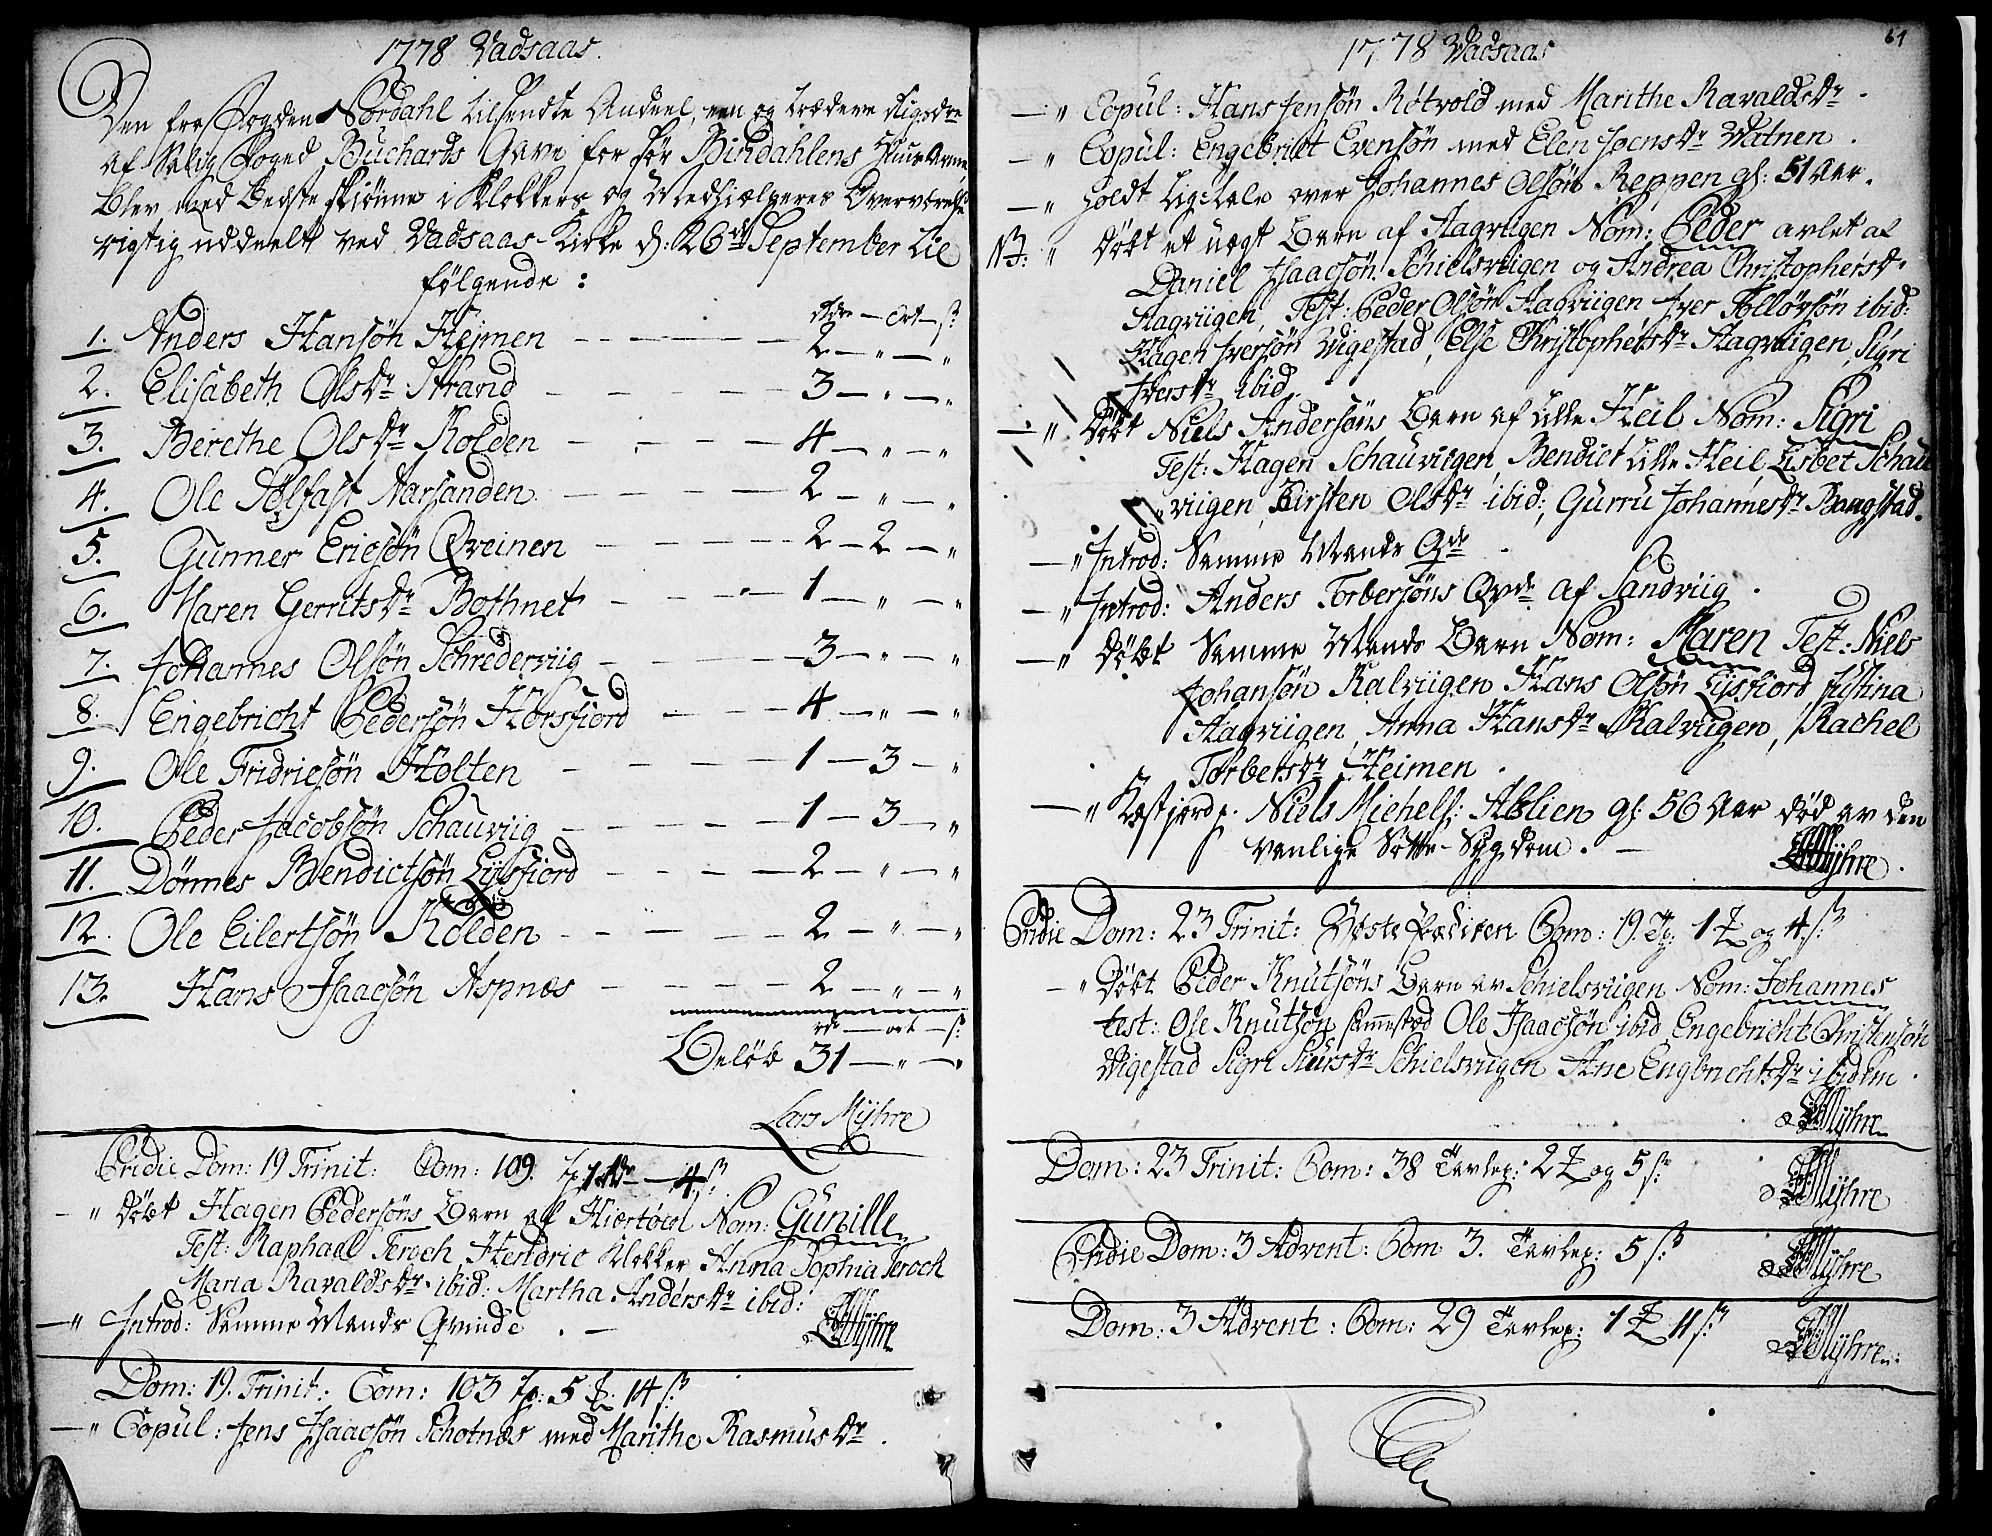 1778 Vadsaas.
Den fra Fogden Nordahl tilsendte Andeel, een og tredeve Rigsdr
af Salig Foged Buchards Gave for Sør Bindahlens Huus Arme,
blev med bedste skiønne i Klokkers og Medhielperes Overværelse
rigtig uddeelt ved Vadsaas Kirke d: 26de September til
følgende:
rdr — Ort — s:
1. Anders Hansøn Hejmen — 2 — " — "
2. Elisabeth Olsdr Strand — 3 — " — "
3. Berethe Olsdr Kolden — 4 — " — "
4. Ole Solfast Aarsanden — 2 — " — "
5. Gunner Ericsøn Qveinen — 2 — 2 — "
6. Maren Gerritsdr Bothnet — 1 — " — "
7. Johannes Olsøn Schrederviig — 3 — " — "
8. Engebricht Pedersøn Horsfiord — 4 — " — "
9. Ole Fridricsøn Holten — 1 — 3 — "
10. Peder Jacobsøn Schauviig — 1 — 3 — "
11. Dønnes Bendictsøn Lysfiord — 2 — " — "
12. Ole Eilertsøn Kolden — 2 — " — "
13. Hans Isaacsøn Aspnæs — 2 — " — "
rdr — ort — s:
Beløb 31 — " — "
Lars Myhre
Pridie Dom: 19 Trinit: Com: 109. Tp. 1 rdr — 4 s:
— " Døbt Hagen Pedersøns Barn af Hiertøen Nom: Gunille
Test: Raphael Teroch, Hendric Klokker Anna Sophia Teroch
Maria Ravaldsdr ibid: Martha Andersdr ibid:
— " Introd: Samme Mands Qvinde. — LMyhre
Dom: 19. Trinit: Com: 103 Tp: 5 14 s:
— " Copul: Jens Isaacsøn Schotnæs med Marithe Rasmusdr.
1778 Vadsaas 61
— " Copul: Hans Jensøn Røtvold med Marithe Ravaldsdr.
— " Copul: Engebricht Evensøn med Elen Joensdr Vatnen.
— " holdt Lig-tale over Johannes Olsøn Reppen gl: 51 Aar.
NB: " Døbt et uægt Barn af Aagviigen Nom: Peder avlet af
Daniel Isaacsøn Schielsviigen og Andrea Christophersdr
Aagviigen, Test: Peder Olsøn Aagviigen, Iver Tolløvsøn ibid:
Hagen Iversøn Vigestad, Else Christophersdr Aagviigen, Sigri
Iversdr ibid.
— " Døbt Niels Andersøns Barn af Lille Heil Nom: Sigri
Test: Hagen Schauviigen, Bendict Lille Heil, Lisbet Schau
viigen, Kirsten Olsdr ibid:, Gurru Johannesdr Bangstad.
— " Introd: Samme Mands Qvde.
— " Introd: Anders Torbersøns Qvde af Sandviig.
— " Døbt Samme Mands Barn Nom: Maren Test: Niels
Johansøn Kalviigen Hans Olsøn Lysfiord Justina
Aagviigen, Anna Hansdr Kalviigen, Rachel
Torbersdr Heimen.
— " Kastjord p. Niels Michels: Ablien gl: 56 Aar død av den
vanlige Sotte-Sygdom. — LMyhre.
Pridie Dom: 23 Trinit: Com: 19. Tp. 1 og 4 s:
— " Døbt Peder Knutsøns Barn av Schielsviigen Nom: Johannes
test: Ole Knutsøn sammestæd Ole Isaacsøn ibid Engebricht Christensøn
Vigestad Sigri Siursdr Schielsviigen Ane Engbrichtsdr ibidem.
LMyhre
Dom: 23 Trinit: Com: 38 Tavlep: 2 og 5 s: LMyhre
Pridie Dom: 3 Advent: Com 3. Tavlep: 5 s: LMyhre
Dom: 3 Advent: Com: 29 Tavlep: 1 11 s: LMyhre